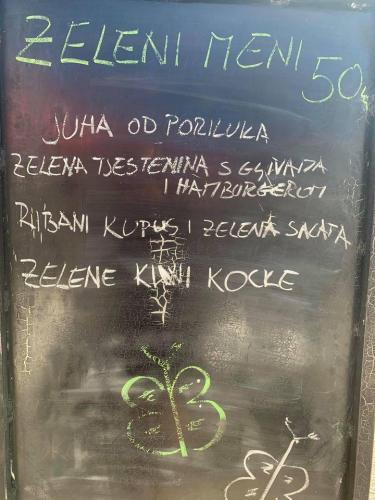 ZELENI MENI 50
JUHA OD PORILUKA
ZELENA TJESTENINA S GLJIVAMA
I HAMBURGEROM
RIBANI KUPUS I ZELENA SALATA
ZELENE KIWI KOCKE